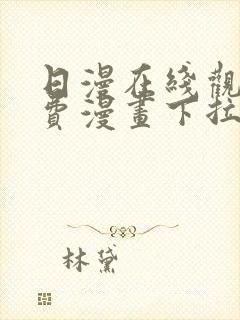 日漫在綫觀
費漫畫下拉
林黛